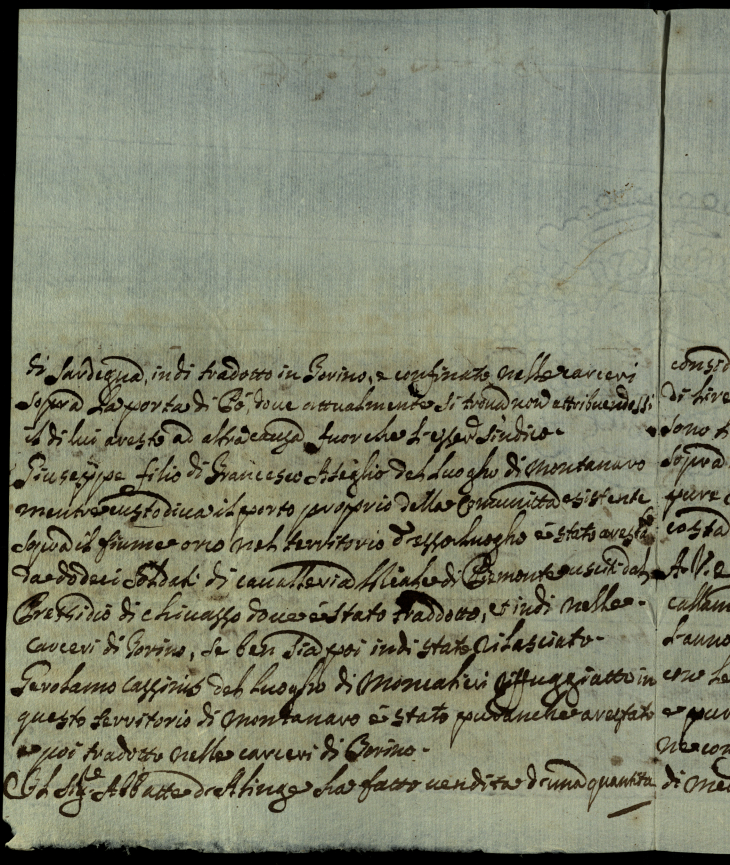 di Sardegna, indi tradotto in Torino, e confinato nelle carceri
sopra la porta di Pò, dove attualmente si trova non attribuendossi
il di lui aresto ad altra causa fuorche l'esser Sindico.
Giuseppe filio di Francesco del luogho di Montanaro
mentre custodiva il porto proprio della Comunità esistente
sopra il fiume orco nel territorio d'esso luogho è stato arestato
da dodeci Soldati di cavalleria di Piemonte usciti dal
Presidio di chivasso dove è stato traddotto, et indi nelle
carceri di Torino, se ben sia poi indi stato rilasciato.
Gerolamo Cassinis del luogho di Moncalieri in
questo territorio di Montanaro è stato pur anche arestato
e poi tradotto nelle carceri di Torino.
Il Sig.e Abbatte d'Alinge ha fatto vendita d'una quantità
consid
di lire
sono
sopra
pure
costa
A.V. e
l'anno
con le
e pur
ne con
di med